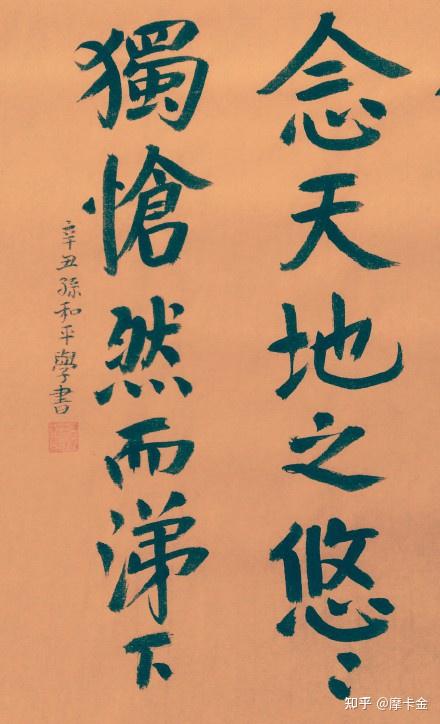 念天地之悠〻
獨愴然而涕下
辛丑孫和平學書
知乎 @摩卡金